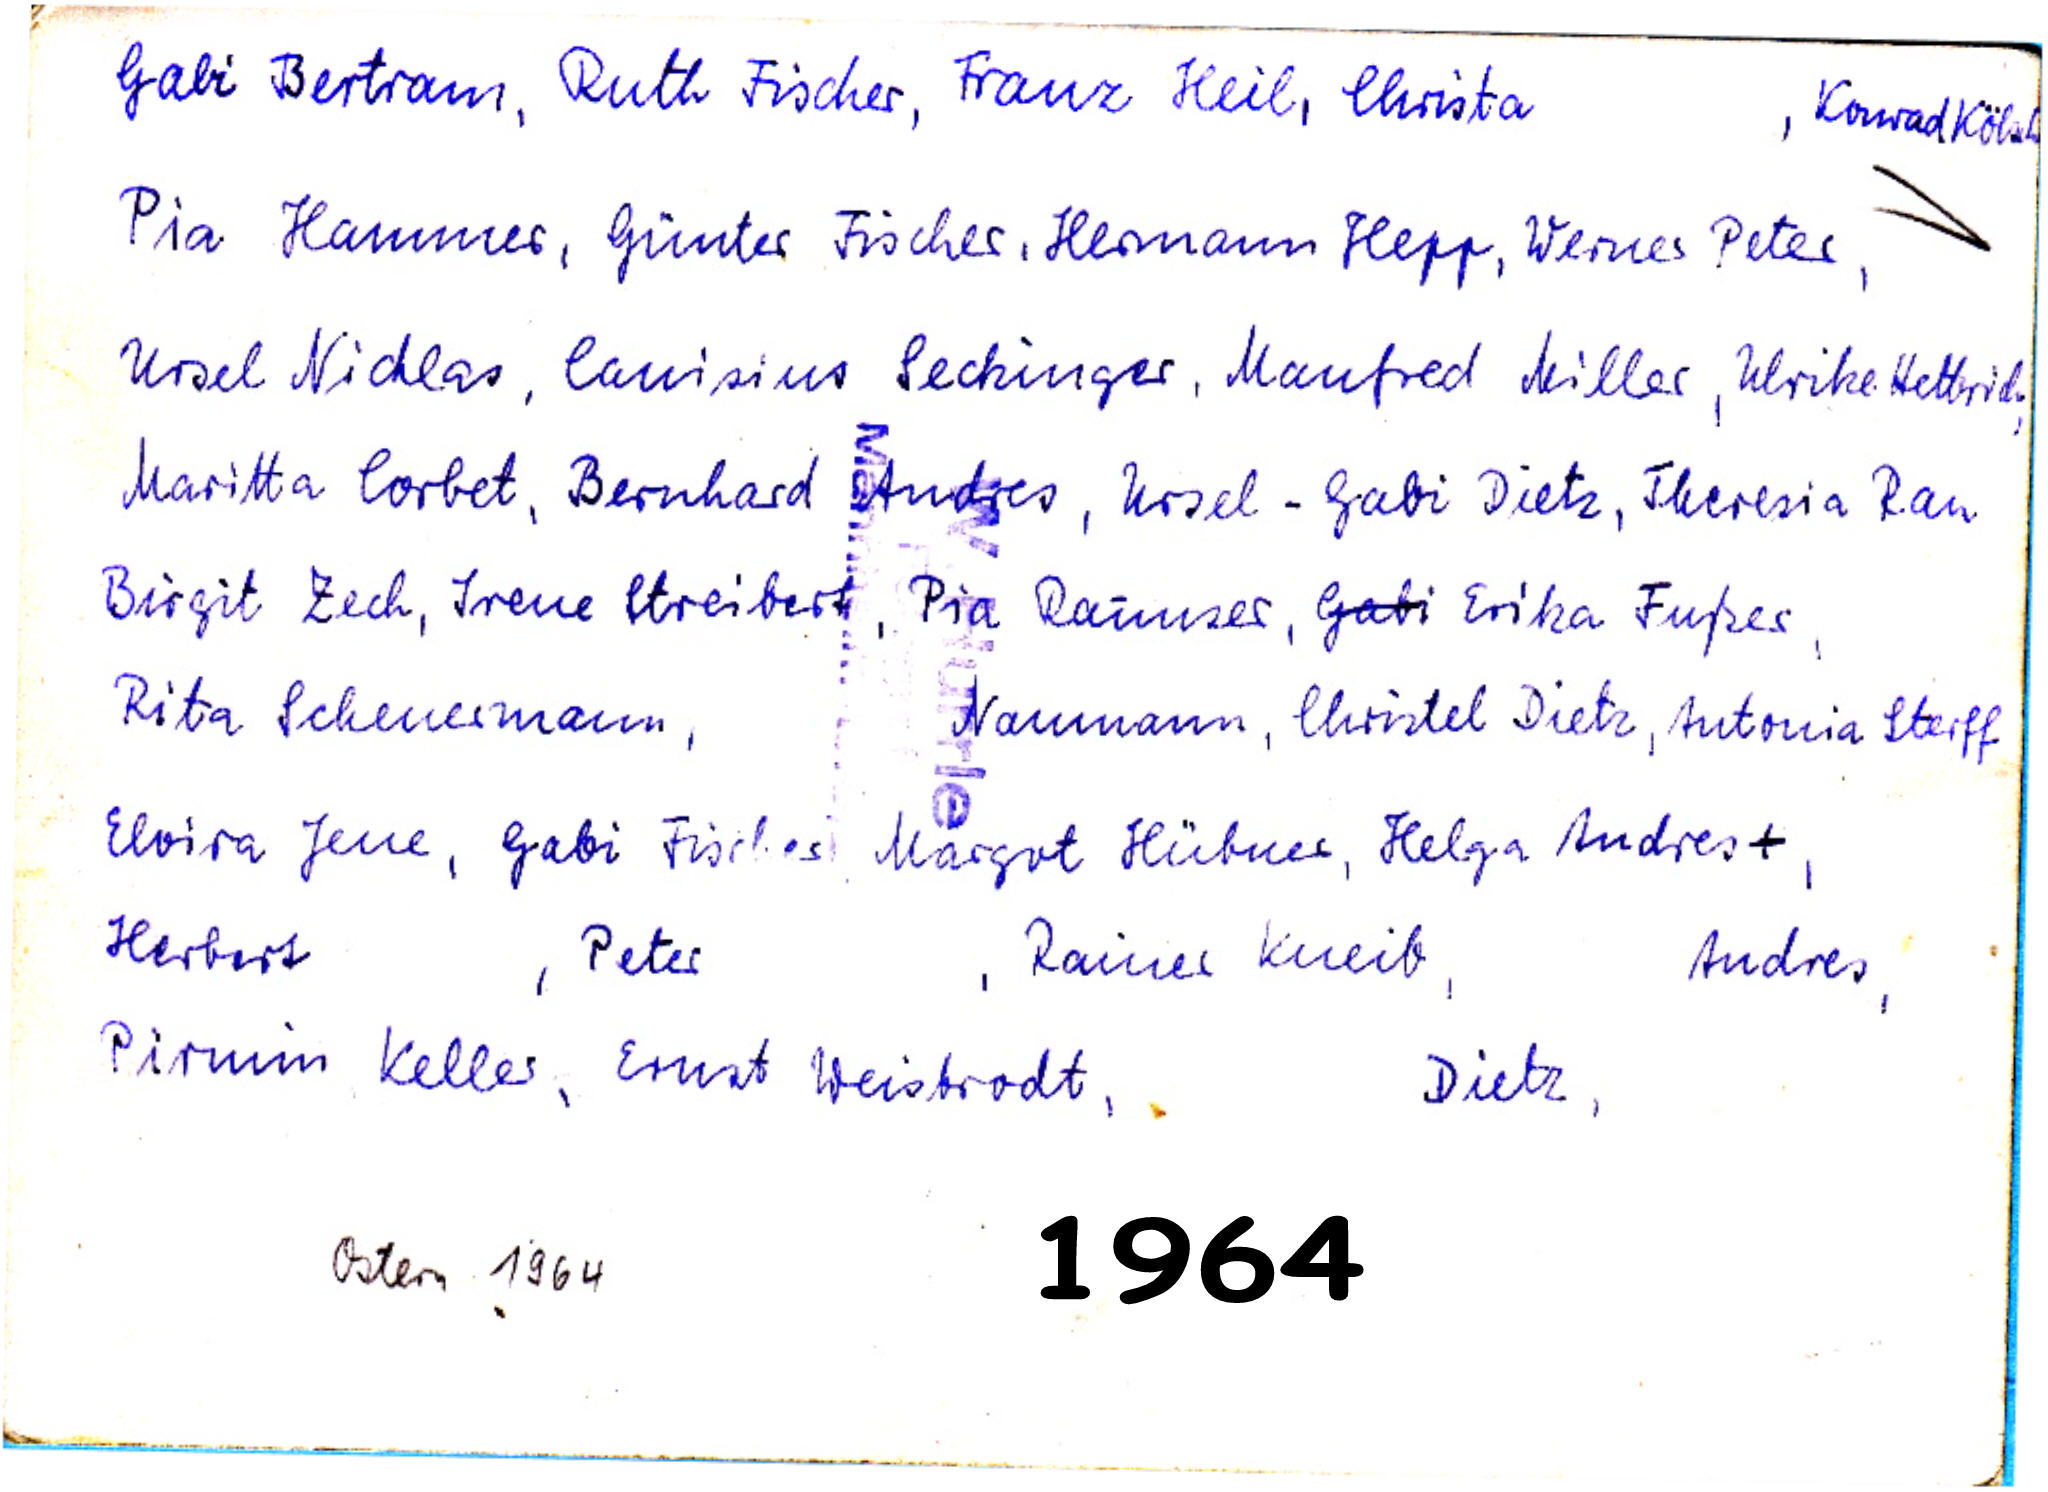 Gabi Bertram, Ruth Fischer, Franz Heil, Christa , Konrad
Pia Hammer, Günter Fischer, Hermann Hepp, Werner Peter,
Ursel Nicklas, Canisius Seckinger, Manfred Miller, Ulrike Hettrich,
Maritta Corbet, Bernhard Andres, Ursel - Gabi Dietz, Theresia Rau
Birgit Zech, Irene Streibert, Pia , Gabi Erika Fußer,
Rita Scheuermann, Naumann, Christel Dietz, Antonia Sterff
Elvira Jene, Gabi Fischer Margot Hübner, Helga Andres+,
Herbert , Peter , Rainer Kneib, Andres,
Pirmin Keller, Ernst Weisbrodt, Dietz,
Ostern 1964
1964